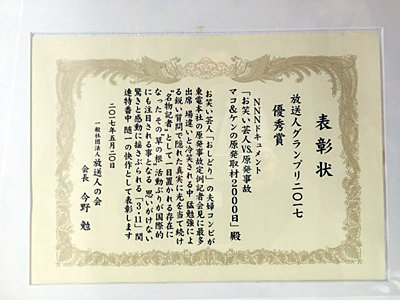 表彰状
放送人グランプリ二〇一七
優秀賞
NNNドキュメント
「お笑い芸人VS.原発事故
マコ&ケンの原発取材2000日」殿
お笑い芸人「おしどり」の夫婦コンビが
東電本社の原発事故定例記者会見に最多
出席 場違いと冷笑される中 猛勉強によ
る鋭い質問で隠れた真実に光を当て続け
“名物記者”として一目置かれる存在に
なった その“草の根”活動ぶりが国際的
にも注目される事となる 思いがけない
驚きと感動に揺さぶられる「3・11」関
連特番中 随一の快作として表彰します
二〇一七年五月二〇日
一般社団法人 放送人の会
会長 今野 勉